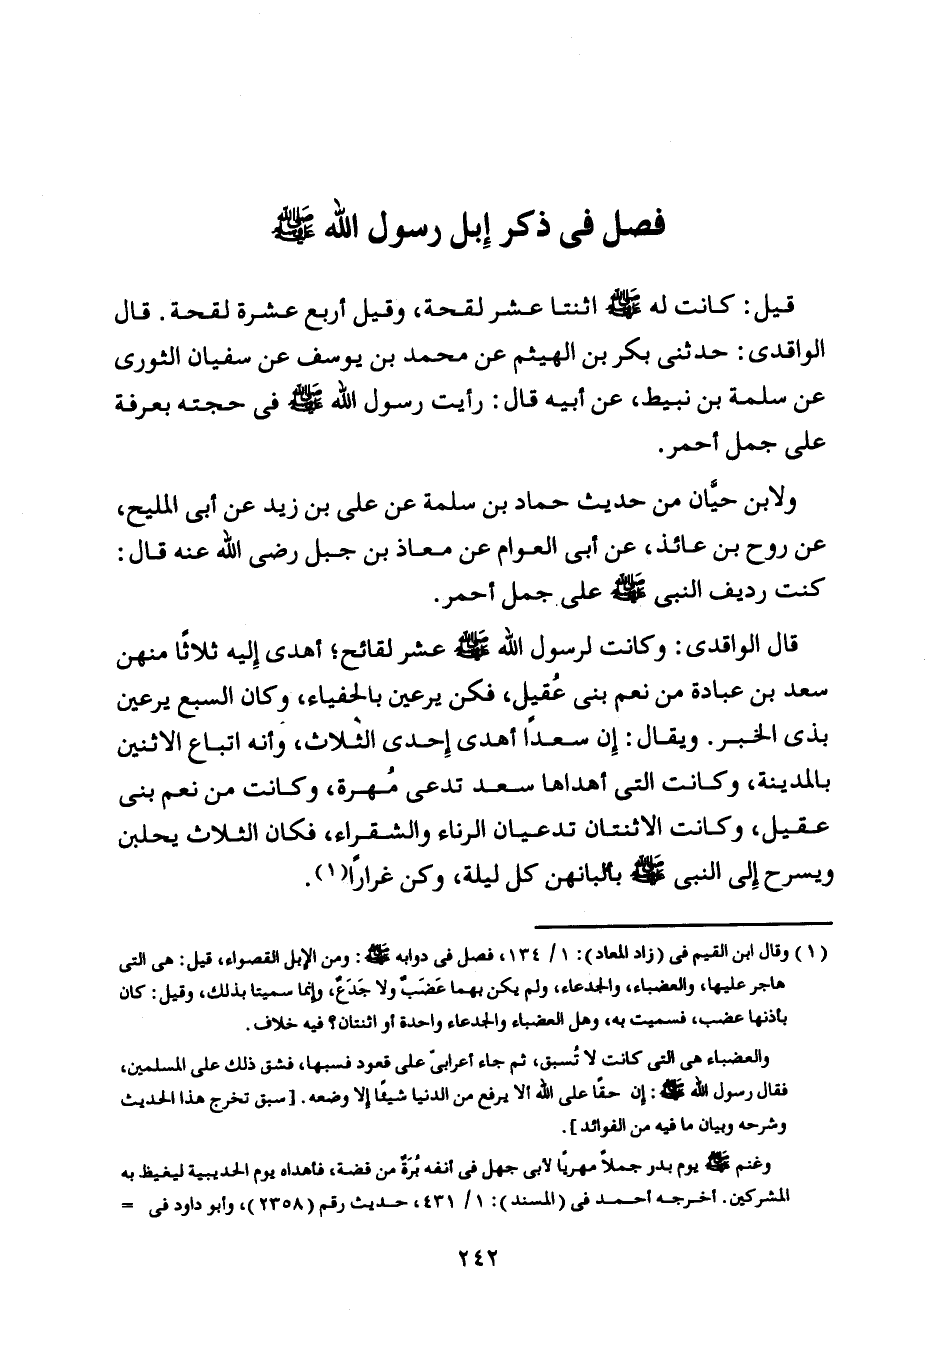 فصل فى ذكر إبل رسول الله ﷺ
قيل: كانت له ﷺ اثنتا عشر لقحة، وقيل أربع عشرة لقحة. قال
الواقدى: حدثنى بكر بن الهيثم عن محمد بن يوسف عن سفيان الثورى
عن سلمة بن نبيط، عن أبيه قال: رأيت رسول الله ﷺ فى حجته بعرفة
على جمل أحمر.
ولابن حيَّان من حديث حماد بن سلمة عن على بن زيد عن أبى المليح،
عن روح بن عائذ، عن أبى العوام عن معاذ بن جبل رضى الله عنه قال:
كنت رديف النبى ﷺ على جمل أحمر.
قال الواقدى: وكانت لرسول الله ﷺ عشر لقائح؛ أهدى إليه ثلاثًا منهن
سعد بن عبادة من نعم بنى عُقيل، فكن يرعين بالحفياء، وكان السبع يرعين
بذى الخبر. ويقال: إن سعدًا أهدى إحدى الثلاث، وأنه اتباع الاثنين
بالمدينة، وكانت التى أهداها سعد تدعى مُهرة، وكانت من نعم بنى
عقيل، وكانت الاثنتان تدعيان الرناء والشقراء، فكان الثلاث يحلبن
ويسرح إلى النبى ﷺ بألبانهن كل ليلة، وكن غرارًا(١).
(١) وقال ابن القيم فى (زاد المعاد): ١/ ١٣٤، فصل فى دوابه ﷺ: ومن الإبل القصواء، قيل: هى التى
هاجر عليها، والعضباء، والجدعاء، ولم يكن بهما عَضَبٌ ولا جَدَعٌ، وإنما سميتا بذلك، وقيل: كان
بأذنها عضب، فسميت به، وهل العضباء والجدعاء واحدة أو اثنتان؟ فيه خلاف.
والعضباء هى التى كانت لا تُسبق، ثم جاء أعرابىّ على قعود فسبها، فشق ذلك على المسلمين،
فقال رسول الله ﷺ: إن حقًا على الله ألا يرفع من الدنيا شيئًا إلا وضعه. [سبق تخرج هذا الحديث
وشرحه وبيان ما فيه من الفوائد].
وغنم ﷺ يوم بدر جملاً مهريًا لأبى جهل فى أنفه بُرَةٌ من فضة، فأهداه يوم الحديبية ليغيظ به
المشركين. أخرجه أحمد فى (المسند): ١/ ٤٣١، حديث رقم (٢٣٥٨)، وأبو داود فى =
٢٤٢